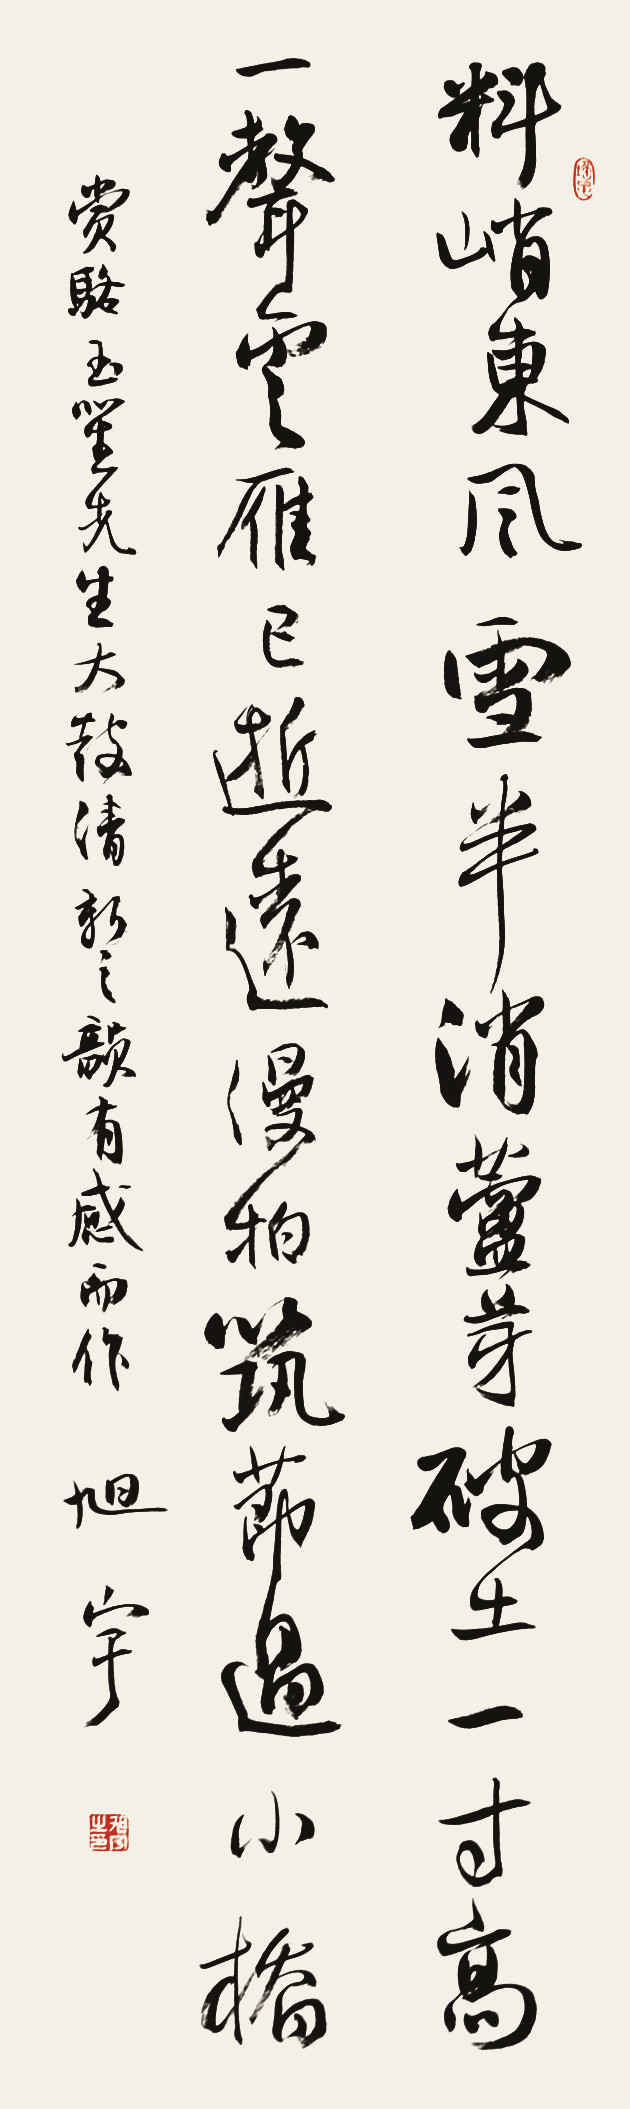 料峭東風雪半消蘆芽破土一寸高
一聲雲雁已逝遠漫拍筑節過小橋
賞駱玉笙先生大鼓清新之韻有感而作
旭宇